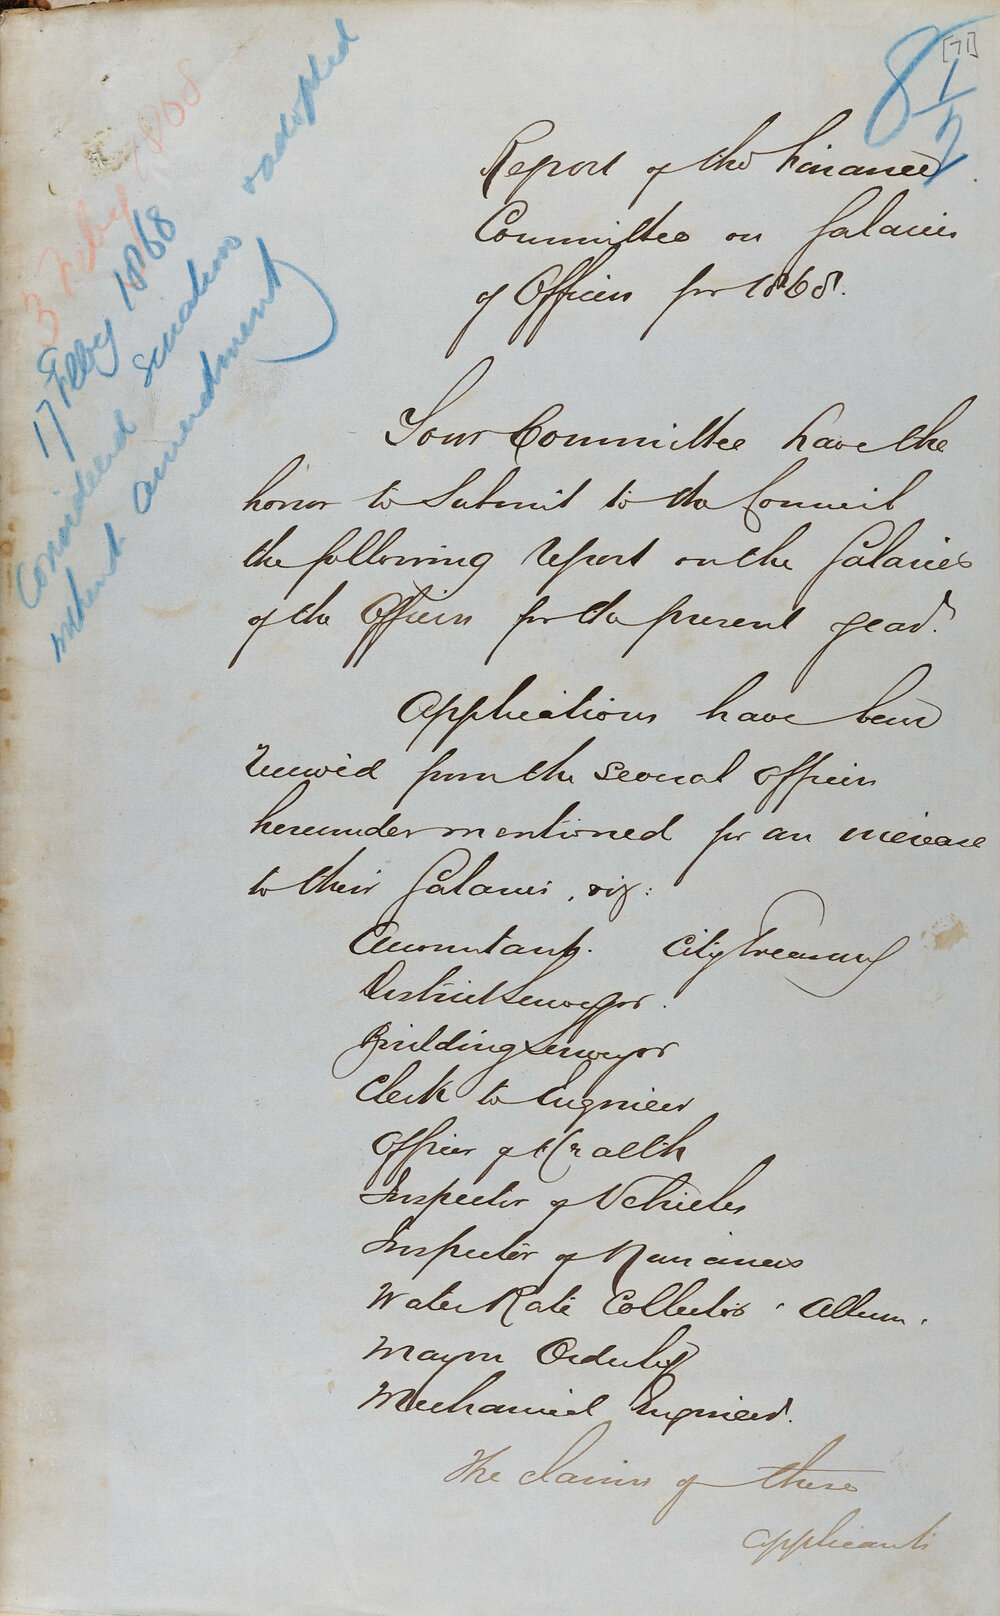 [71]
8 1/2
3 Feby 1868
17 Feby 1868
Considered seriatim & adopted
without amendment
Report of the Finance
Committee on Salaries
of Officers for 1868.
Your Committee have the
honor to Submit to the Council
the following report on the Salaries
of the Officers for the present year.
Applications have been
received from the several officers
hereunder mentioned for an increase
to their Salaries, viz:
Accountant. City Treasury
District Surveyor.
Building Surveyor
Clerk to Engineer
Officer of Health
Inspector of Vehicles
Inspector of Nuisances
Water Rate Collector
Mayors Orderly
Mechanical Engineer.
The claims of these
applicants